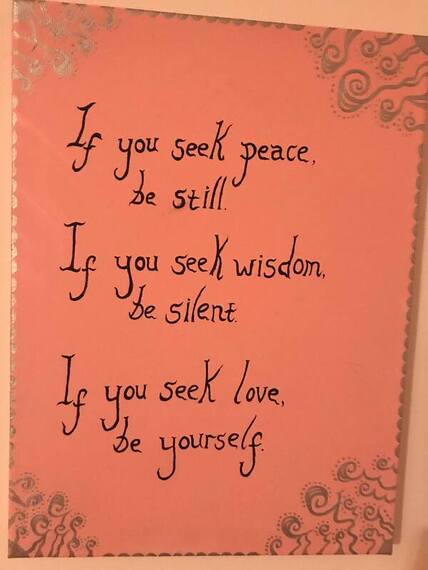 If you seek peace,
be still.
If you seek wisdom,
be silent.
If you seek love,
be yourself.